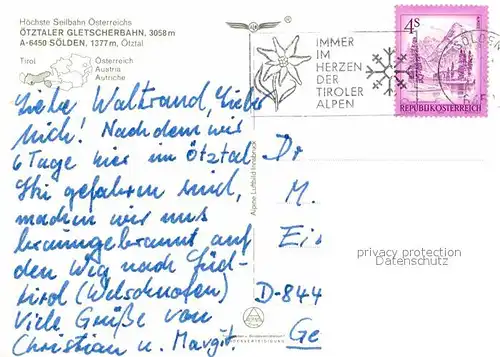 Höchste Seilbahn Österreichs
ÖTZTALER GLETSCHERBAHN, 3058 m
A-6450 SÖLDEN, 1377 m, Ötztal
Tirol
Österreich
Austria
Autriche
Liebe Waltraud, Lieber
Mich! Nachdem wir
6 Tage hier im Ötztal
Ski gefahren sind,
machen wir uns
braungebrannt auf
den Weg nach Süd-
tirol (Welschnofen)
Viele Grüße von
Christian u. Margit.
Alpine Luftbild Innsbruck
IMMER
IM
HERZEN
DER
TIROLER
ALPEN
4 S
REPUBLIK ÖSTERREICH
SÖLDEN
Dr
M.
Ei
privacy protection
Datenschutz
D-844
Ge